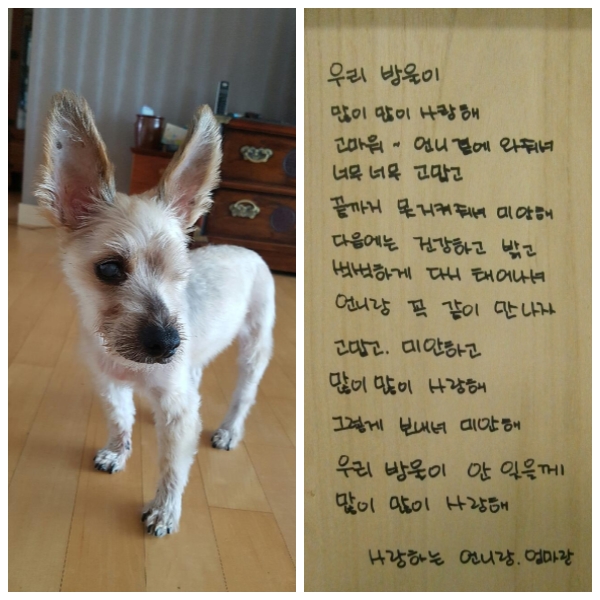 우리 방울이
많이 많이 사랑해
고마워~ 언니 곁에 와줘서
너무 너무 고맙고
끝까지 못지켜줘서 미안해
다음에는 건강하고 밝고
씩씩하게 다시 태어나서
언니랑 꼭 같이 만나자
고맙고. 미안하고
많이 많이 사랑해
그렇게 보내서 미안해
우리 방울이 안 잊을께
많이 많이 사랑해
사랑하는 언니랑. 엄마랑